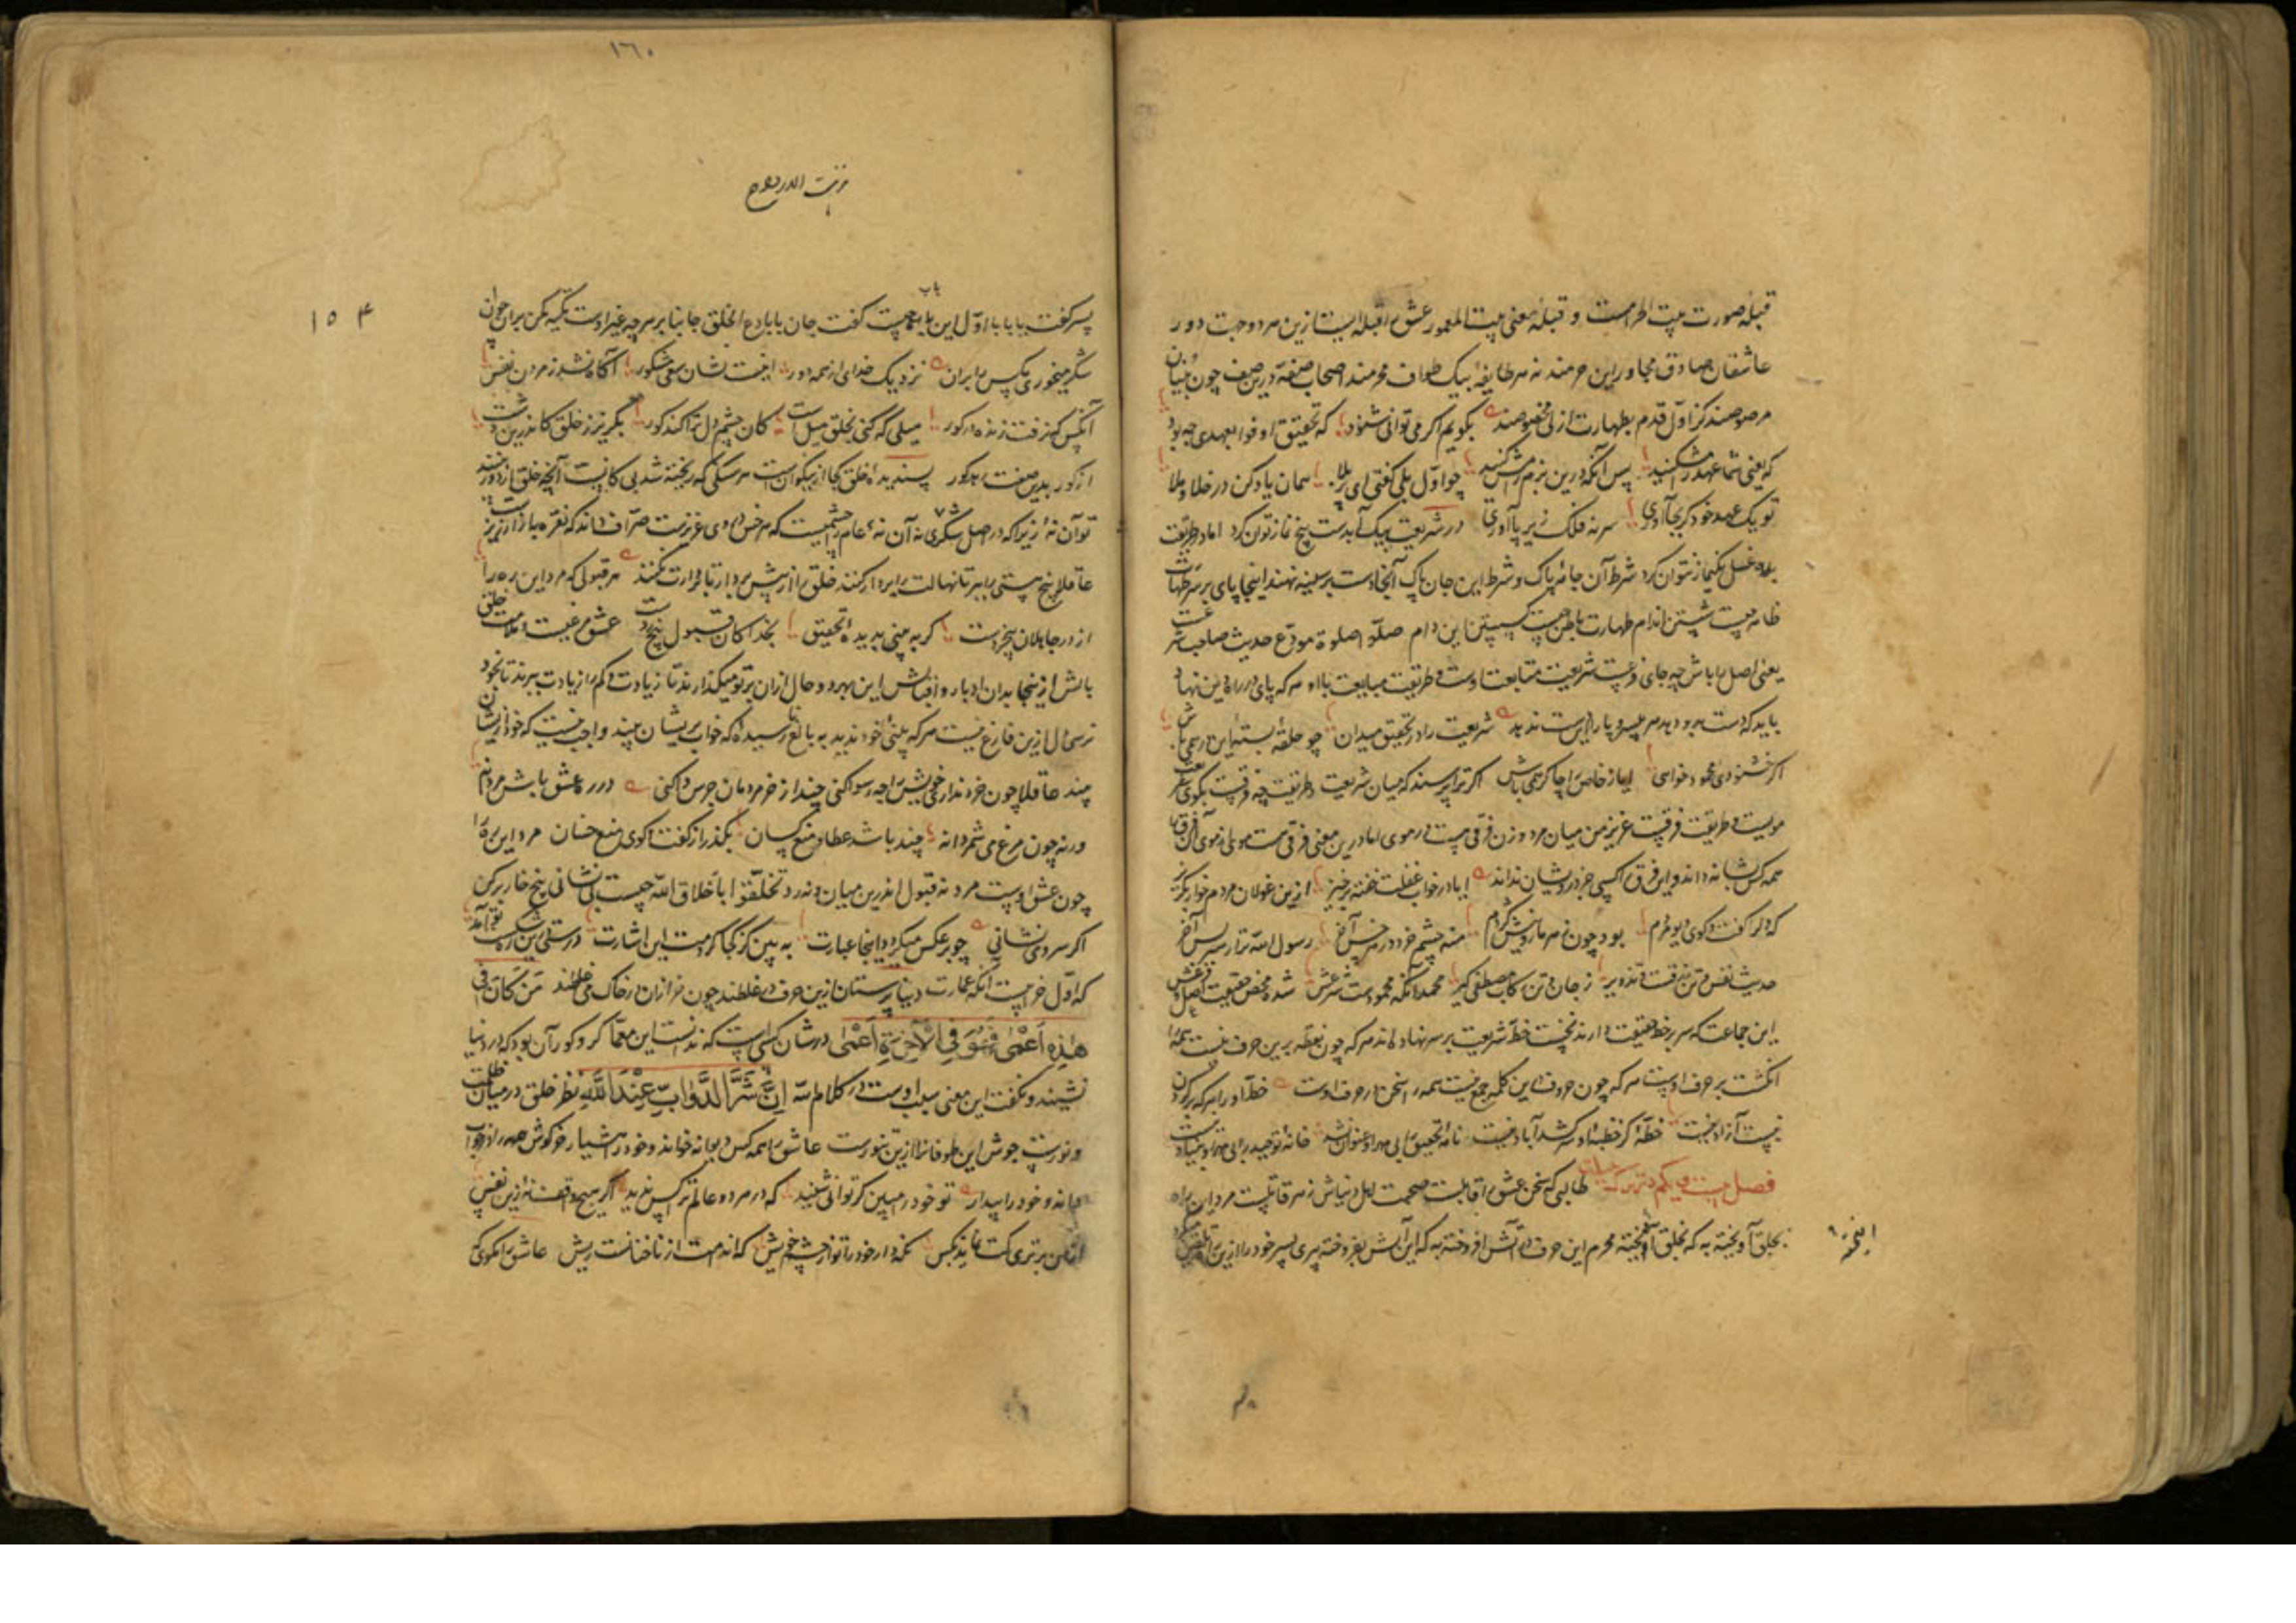 قبله صورت بیت الحرامست و قبله معنی بیت المعمور عشق را قبله ایست ازین هر دو جهت دور
عاشقان صادق مجاور این حرمند نه هر طایفه بیک طواف محرمند اصحاب صفه درین صف چون بنیان
مرصوصند کز اول قدم بطهارت ازلی مخصوصند بگویم اگر می توانی شنود که تحقیق اوفوا بعهدی چه بود
که یعنی شما عهد را مشکنید پس آنگه درین بزم سر کنید چو اول بلی گفتی ای بر بلا همان یاد کن در خلا و ملا
تو یک عهد خود گر بجا آوری سر نه فلک زیر پا آوری در شریعت بیک آبدست پنج نماز توان کرد اما در طریقت
غسل یک نماز نتوان کرد شرط آن جامه پاک و شرط این جان پاک آنجا دست بر سینه نهند اینجا پای بر سر طهارت
ظاهر چیست شستن اندام طهارت باطن چیست گسستن این دام صلوا صلوة مودع حدیث صاحب شرعست
یعنی اصل را باش چه جای فرعست شریعت متابعت اوست و طریقت مبایعت با او هر که پای در راه دین نهاد
باید که دست بدو دهد هر بی سر و پا را این دست ندهد شریعت را در تحقیق میدان چو حلقه بسته این در همی باش
اگر خشنودی محمود خواهی ایاز خاص را چاکر همی باش اگر ترا پرسند که میان شریعت و طریقت چه فرقست بگوی شریعت
مویست و طریقت فرقست عزیز من میان مرد و زن فرقی نیست در موی اما درین معنی فرقی ست
همه کس شانه داند و این فرق را کسی جز درویشان نداند ایا در خواب غفلت خفته برخیز ازین غولان مردم خوار بگریز
که دل را گفت و گوی دیو مردم بود چون زهر مار و نیش کژدم منه چشم خرد در هر خس آخر رسول الله ترا رهبر بس آخر
حدیث نفس و تن زرقست و تزویر ز جان و تن رکاب مصطفی گیر محمد آنکه محمودست شرعش شده محض حقیقت اصل و فرعش
این جماعت که سر بر خط حقیقت دارند نخست خط شریعت بر سر نهاده اند هر که چون نقطه برین حرف نیست همه را
انگشت بر حرف اوست هر که چون حروف این کلمه جمع نیست همه را سخن در حرف اوست خط او را هر که بر گردن
نیست آزاد نیست خطه کز خطبه او سر کشد آباد نیست نامه تحقیق را بی مهر او عنوان نشد خانه توحید را بی مهر او بنیاد نیست
فصل بیست و یکم در ترک طالبی که سخن عشق را قابلست صحبت اهل دنیاش زهر قاتلست مرد این راه
بحلق آویخته به که بخلق آمیخته محرم این حرف در آتش افروخته به که این آتش بفروخته پیری پسر خود را
١٦٠
نزهت الارواح
۱۵۴
پسر گفت یا بابا اول این باب چیست گفت جان بابا دع الخلق جانبا بر هر چه غیر اوست تکیه مکن بر آن چون
شکر میخوری مگس مران نزدیک خدای از همه دور اینست نشان سعی مشکور آگاه نشد ز مردن نفس
آنکس که نرفت زنده در گور میلی که کنی بخلق میل است کان چشم دل ترا کند کور بگریز ز خلق کاندرین دشت
از گور بدین صفت رهد گور پسندیده خلق کجا از نیکوانست هر سگی که ریخته شد بی کانیست آنچه خلق از دور بینند
تو آن نه زیرا که در اصل شکری نه آن نه عام چشمیست که هر خس در وی عزیزست صراف داند که نقره بازار تمیز
عاقلا بیخ هستی را ببر تا نهالت را بردارکنند خلق را از پیش بردار تا قرارت کنند هر قبولی که مرد این ره را
از در جاهلان بیخردست گر به بینی بدیده تحقیق بخدا کان قبول بیخ ردست عشق مرغیست و ملامت خلق
بالش ازینجا بدان ادبار و اقبالش این هر دو حال از آن بر تو میگذارند تا زیادت و کم را از یادت ببرند تا بخود
نرسی دل ازین فارغ نیست هر که بلندی خود ندید به بالغی نرسید گاه که خواب پریشان بیند واجب نیست که خود را پریشان
بیند عاقلا چون خر نداری خویش را چه رسوا کنی چند از خر مردمان جرس وا کنی در ره عشق باش مردانه
ورنه چون مرغ می شمر دانه چند باشد عطا و منع کسان بگذر از گفت و گوی منع خسان مرد این ره را
چون عشق اوست مرد نه قبول اندرین میان و نه رد تخلقوا باخلاق الله چیست بی نشانی بیخ خار بر کن
اگر سر وی نشانی چو بر عکس میگردد اینجا عبارت به بین کز کجا کردمت این اشارت درستی این در شکست
که اول خرابیست آنگه عمارت دنیا پرستان ازین حرف در غلطند چون خر از آن در خاک می غلطند مَن كَانَ فِي
هٰذِهِ اَعْمٰى فَهُوَ فِي الْاٰخِرَةِ اَعْمٰى در شان کسی است که ندانست این معما کر و کور آن بود که در دنیا
نشیند و نگفت این معنی سلب اوست در کلام الله اِنَّ شَرَّ الدَّوَابِّ عِنْدَ اللّٰهِ نظر خلق در میان ظلمت
و نورست جوش این طوفانها ازین تنورست عاشق را همه کس دیوانه خواند و خود هشیار خرگوش همه را در خواب
داند و خود را بیدار تو خود را مبین گر توانی شنید که در هر دو عالم ترا کس ندید اگر هیچ وقت ازین نفس
از من برتری کت نماند بکس نگه دار خود را تو از چشم خویش که اندامت از ناخنانت ریش عاشق را نگوی که